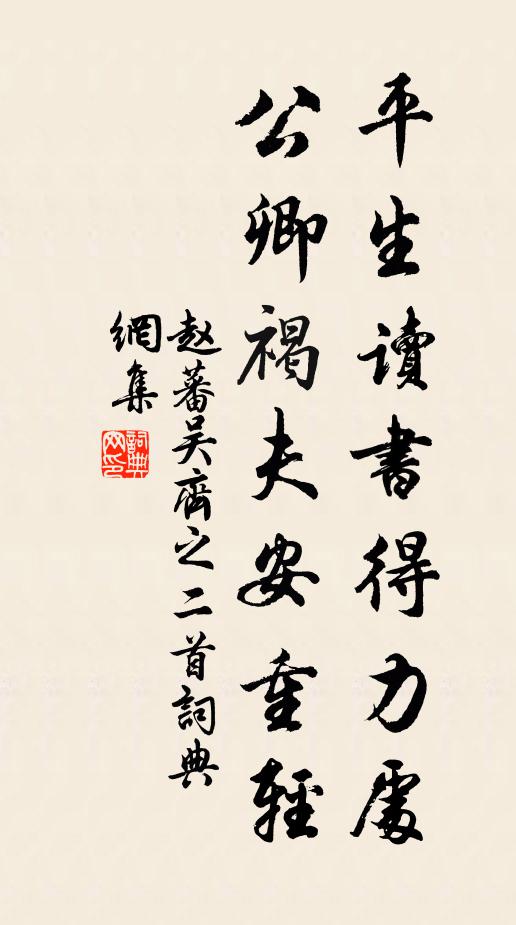 平生讀書得力處
公卿褐夫安重輕
赵蕃吴齊之二首詞典
網集
詞典網印